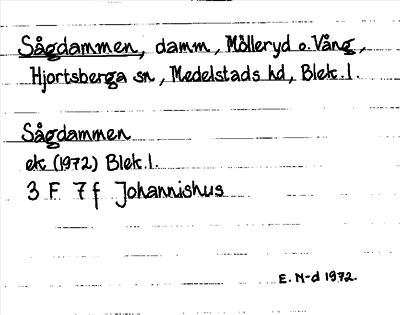 Sågdammen, damm, Mölleryd o. Vång,
Hjortsberga sn, Medelstads hd, Blek. l.
Sågdammen
ek (1972) Blek. l.
3 F 7 f Johannishus
E. N-d 1972.